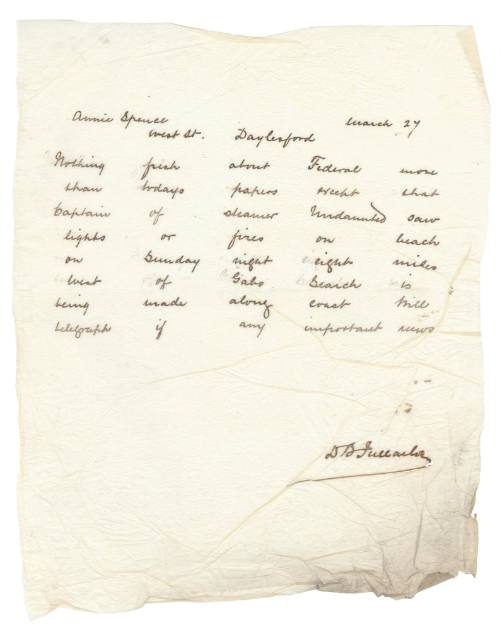 Annie Spence March 27
West St. Daylesford
Nothing fresh about Federal more
than todays papers except that
Captain of steamer Undaunted saw
lights or fires on beach
on Sunday night eight miles
West of Gabo Search is
being made along coast Will
telegraph if any important news
D B